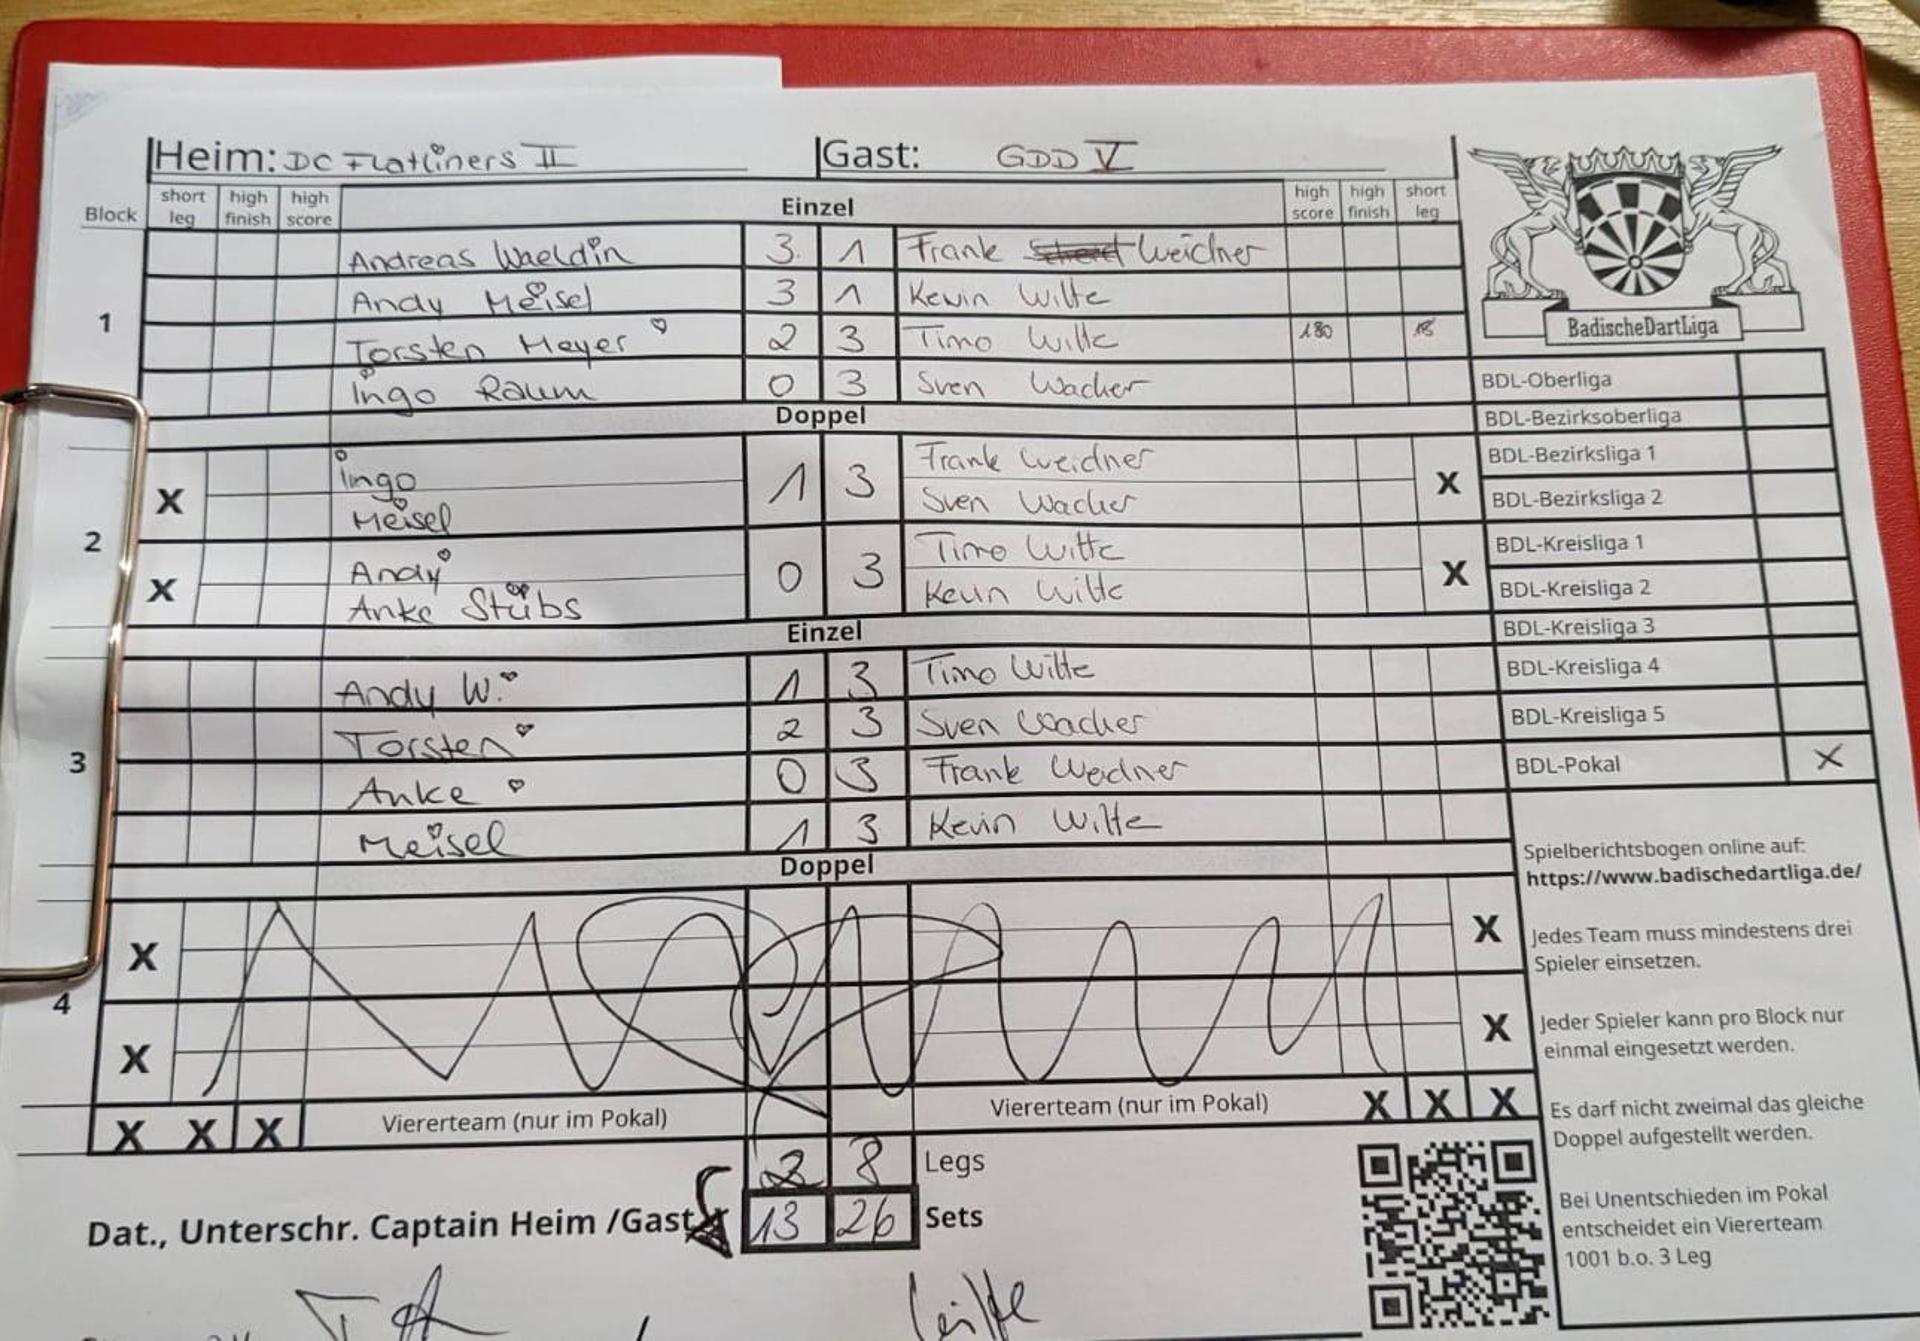 Heim: DC Flatliners II Gast: GDD V
Block short leg high finish high score Einzel high score high finish short leg
Andreas Waeldin 3 1 Frank Weidner
1 Andy Meisel 3 1 Kevin Witte
Torsten Meyer 2 3 Timo Witte 180 18
Ingo Raum 0 3 Sven Wacker
Doppel
2
X Ingo 1 3 Frank Weidner X
Meisel Sven Wacker
X Andy 0 3 Timo Witte X
Anke Stübs Kevin Witte
Einzel
3
Andy W. 1 3 Timo Witte
Torsten 2 3 Sven Wacker
Anke 0 3 Frank Weidner
Meisel 1 3 Kevin Witte
Doppel
4
X X
X X
X X X Viererteam (nur im Pokal) Viererteam (nur im Pokal) X X X
2 8 Legs
Dat., Unterschr. Captain Heim /Gast 13 26 Sets
Witte
BadischeDartLiga
BDL-Oberliga
BDL-Bezirksoberliga
BDL-Bezirksliga 1
BDL-Bezirksliga 2
BDL-Kreisliga 1
BDL-Kreisliga 2
BDL-Kreisliga 3
BDL-Kreisliga 4
BDL-Kreisliga 5
BDL-Pokal X
Spielberichtsbogen online auf:
https://www.badischedartliga.de/
Jedes Team muss mindestens drei
Spieler einsetzen.
Jeder Spieler kann pro Block nur
einmal eingesetzt werden.
Es darf nicht zweimal das gleiche
Doppel aufgestellt werden.
Bei Unentschieden im Pokal
entscheidet ein Viererteam
1001 b.o. 3 Leg